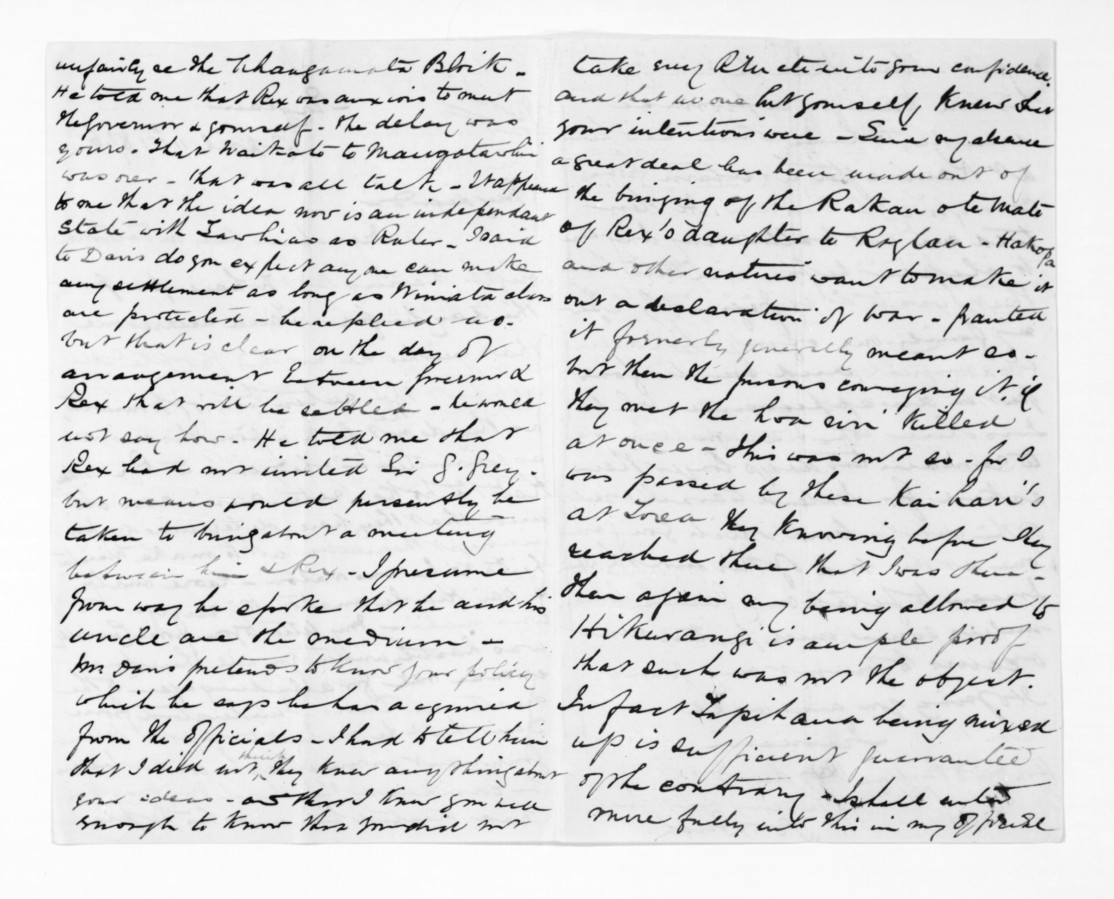 unfairly re the Whangamata Block -
He told me that Rex was anxious to meet
the Governor & yourself - the delay was
yours - That Waikato to Mangatawhiri
was over - that was all talk - It appears
to me that the idea now is an independant
State with Tawhiao as Ruler - I said
to Davis do you expect any one can make
any settlement as long as Winiata & Co
are protected - he replied no -
but that is clear on the day of
arrangement between Govr and
Rex that will be settled - he would
not say how - He told me that
Rex had not invited Sir G. Grey -
but means would presently be
taken to bring about a meeting
between him & Rex - I presume
from way he spoke that he and his
uncle are the medium -
Mr Davis pretends to know your policy
which he says he has acquired
from the Officials - I had to tell him
that I did not think they knew anything about
your ideas - and that I knew you well
enough to know that you did not
take every into your confidence
and that no one but yourself, knew what
your intentions were - Since my absence
a great deal has been made out of
the bringing of the Rakau o te Mate
of Rex's daughter to Raglan - Hakopa
and other natives want to make it
out a declaration of war - granted
it formerly generally meant so -
but then the persons conveying it, if
they met the hoa riri killed
at once - this was not so - for I
was passed by these Kai hari's
at Torea they knowing before they
reached there that I was there -
then again my being allowed to
Hikurangi is ample proof
that such was not the object.
In fact Tapihana being mixed
up is sufficient guarantee
of the contrary - I shall enter
more fully into this in my official